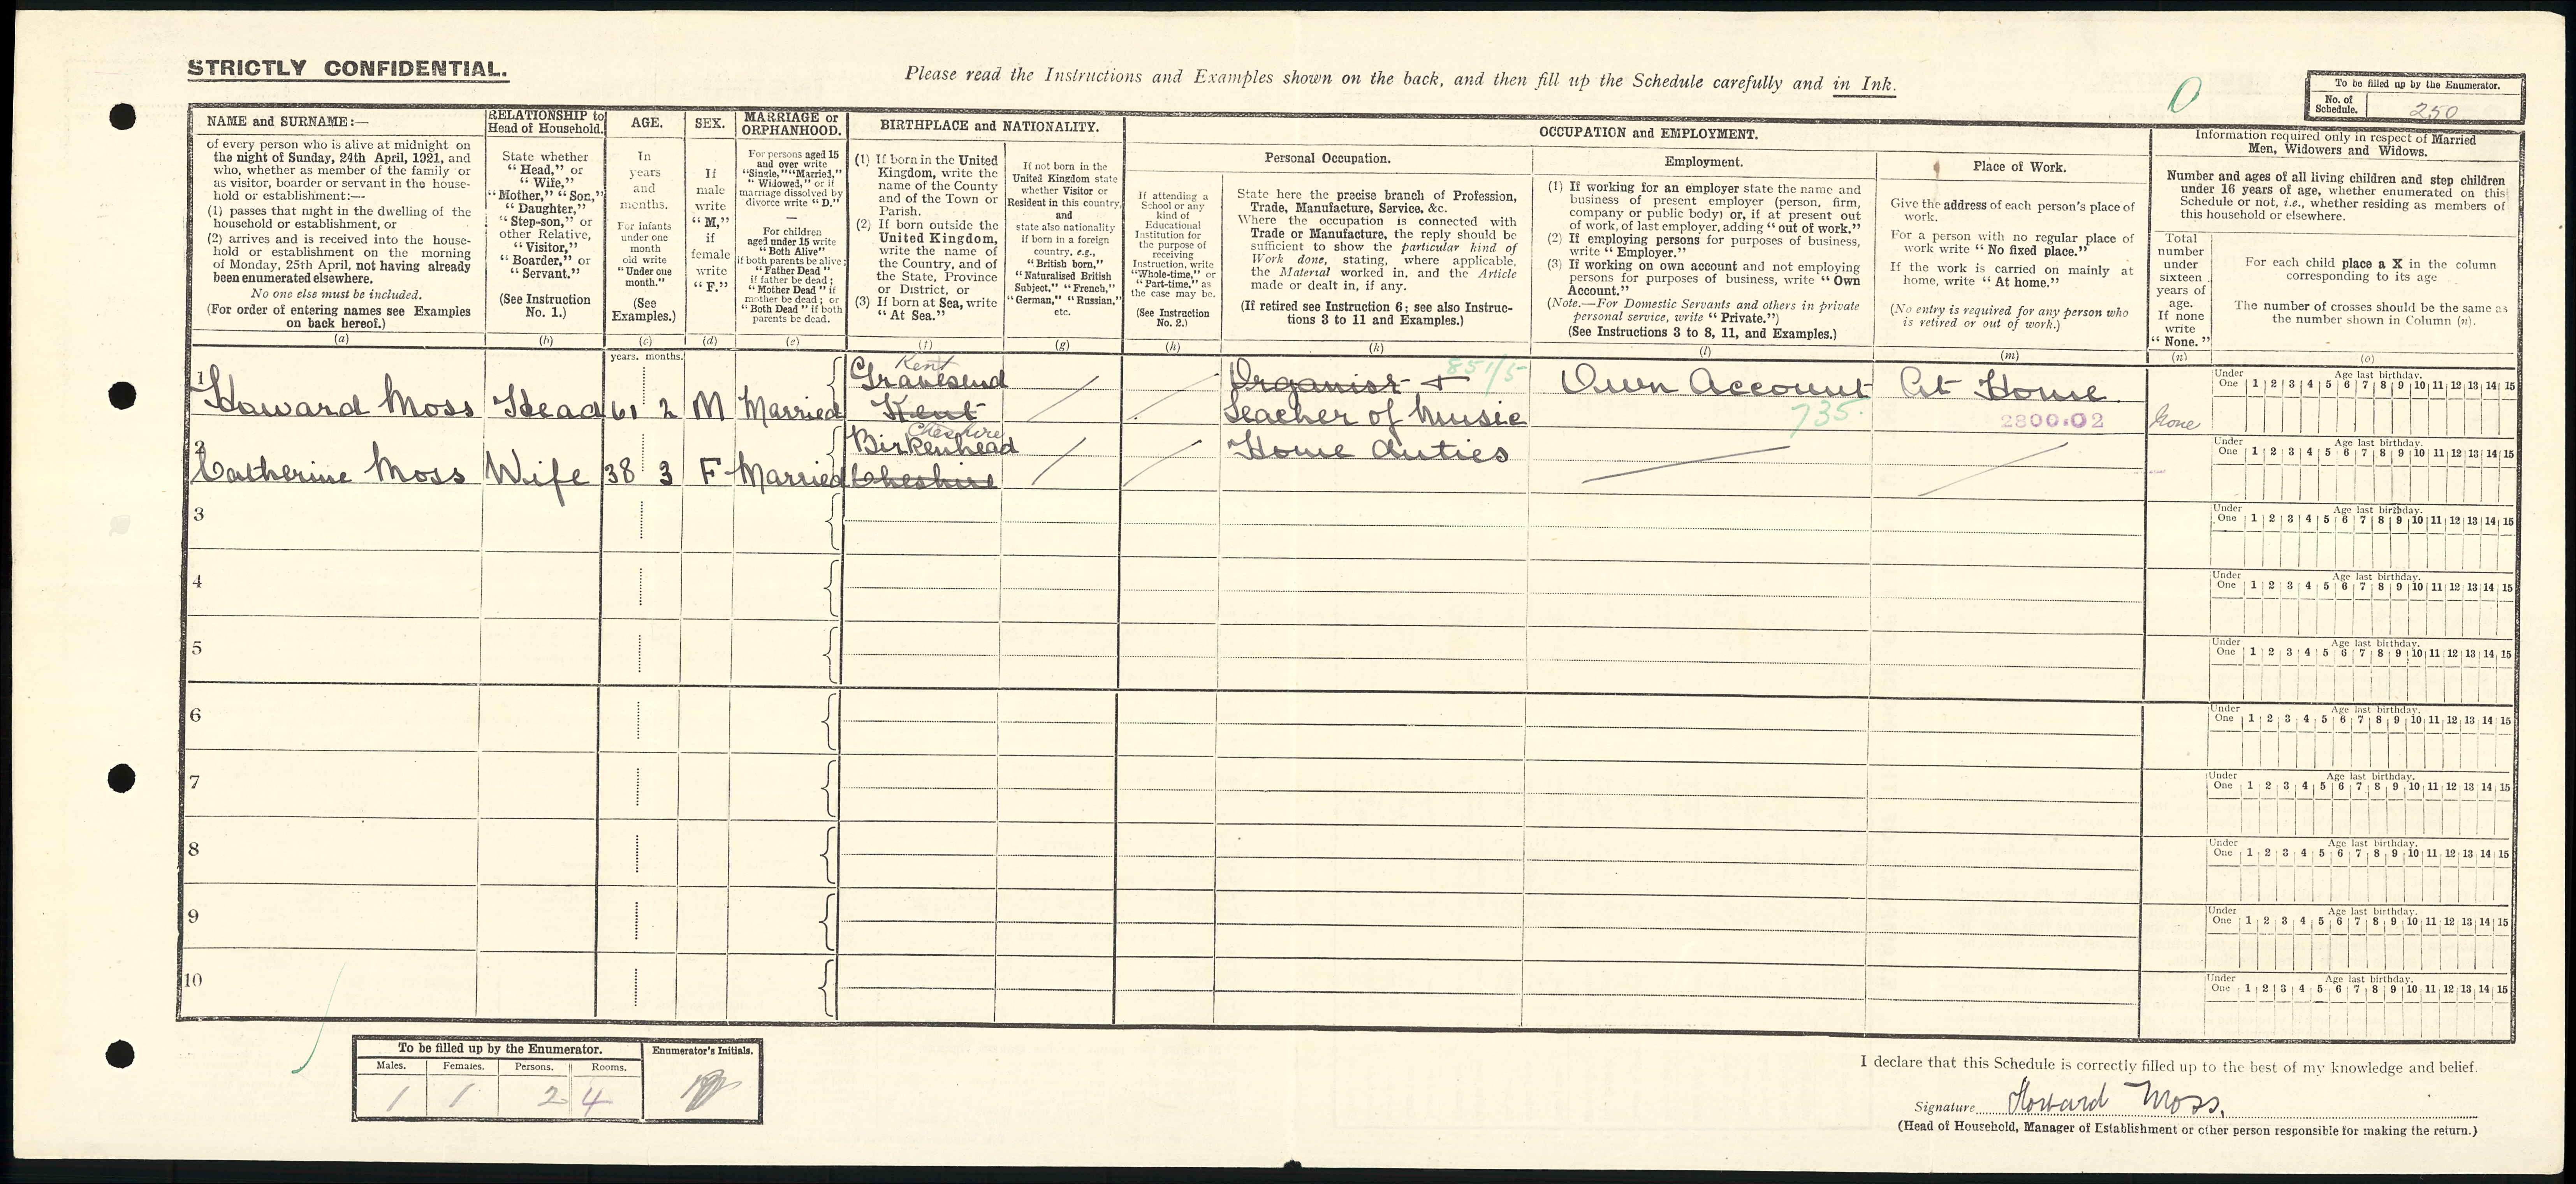 STRICTLY CONFIDENTIAL.
Please read the Instructions and Examples shown on the back, and then fill up the Schedule carefully and in Ink.
0
To be filled up by the Enumerator.
No. of Schedule. 250
NAME and SURNAME:—
of every person who is alive at midnight on
the night of Sunday, 24th April, 1921, and
who, whether as member of the family or
as visitor, boarder or servant in the house-
hold or establishment:—
(1) passes that night in the dwelling of the
household or establishment, or
(2) arrives and is received into the house-
hold or establishment on the morning
of Monday, 25th April, not having already
been enumerated elsewhere.
No one else must be included.
(For order of entering names see Examples
on back hereof.)
(a)
RELATIONSHIP to
Head of Household.
State whether
"Head," or
"Wife,"
"Mother," "Son,"
"Daughter,"
"Step-son," or
other Relative,
"Visitor,"
"Boarder," or
"Servant."
(See Instruction
No. 1.)
(b)
AGE.
In
years
and
months.
For infants
under one
month
old write
"Under one
month."
(See
Examples.)
(c)
SEX.
If
male
write
"M,"
if
female
write
"F."
(d)
MARRIAGE or
ORPHANHOOD.
For persons aged 15
and over write
"Single," "Married,"
"Widowed," or if
marriage dissolved by
divorce write "D."
—
For children
aged under 15 write
"Both Alive"
if both parents be alive;
"Father Dead"
if father be dead;
"Mother Dead" if
mother be dead; or
"Both Dead" if both
parents be dead.
(e)
BIRTHPLACE and NATIONALITY.
(1) If born in the United
Kingdom, write the
name of the County
and of the Town or
Parish.
(2) If born outside the
United Kingdom,
write the name of
the Country, and of
the State, Province
or District, or
(3) If born at Sea, write
"At Sea."
(f)
If not born in the
United Kingdom state
whether Visitor or
Resident in this country,
and
state also nationality
if born in a foreign
country, e.g.,
"British born,"
"Naturalised British
Subject," "French,"
"German," "Russian,"
etc.
(g)
OCCUPATION and EMPLOYMENT.
Personal Occupation.
If attending a
School or any
kind of
Educational
Institution for
the purpose of
receiving
Instruction, write
"Whole-time," or
"Part-time," as
the case may be.
(See Instruction
No. 2.)
(h)
State here the precise branch of Profession,
Trade, Manufacture, Service, &c.
Where the occupation is connected with
Trade or Manufacture, the reply should be
sufficient to show the particular kind of
Work done, stating, where applicable,
the Material worked in, and the Article
made or dealt in, if any.
(If retired see Instruction 6; see also Instruc-
tions 3 to 11 and Examples.)
(k)
Employment.
(1) If working for an employer state the name and
business of present employer (person, firm,
company or public body) or, if at present out
of work, of last employer, adding "out of work."
(2) If employing persons for purposes of business,
write "Employer."
(3) If working on own account and not employing
persons for purposes of business, write "Own
Account."
(Note.—For Domestic Servants and others in private
personal service, write "Private.")
(See Instructions 3 to 8, 11, and Examples.)
(l)
Place of Work.
Give the address of each person's place of
work.
For a person with no regular place of
work write "No fixed place."
If the work is carried on mainly at
home, write "At home."
(No entry is required for any person who
is retired or out of work.)
(m)
Information required only in respect of Married
Men, Widowers and Widows.
Number and ages of all living children and step children
under 16 years of age, whether enumerated on this
Schedule or not, i.e., whether residing as members of
this household or elsewhere.
Total
number
under
sixteen
years of
age.
If none
write
"None."
(n)
For each child place a X in the column
corresponding to its age
The number of crosses should be the same as
the number shown in Column (n).
(o)
years. months.
1 Howard Moss Head 61 2 M Married
Kent
Gravesend
Kent
Organist +
851/5
Teacher of Music
Own Account
735.
At Home
2800.02
None
Under One Age last birthday. 1 2 3 4 5 6 7 8 9 10 11 12 13 14 15
2 Catherine Moss Wife 38 3 F Married
Cheshire
Birkenhead
Cheshire
Home duties
Under One Age last birthday. 1 2 3 4 5 6 7 8 9 10 11 12 13 14 15
3 Under One Age last birthday. 1 2 3 4 5 6 7 8 9 10 11 12 13 14 15
4 Under One Age last birthday. 1 2 3 4 5 6 7 8 9 10 11 12 13 14 15
5 Under One Age last birthday. 1 2 3 4 5 6 7 8 9 10 11 12 13 14 15
6 Under One Age last birthday. 1 2 3 4 5 6 7 8 9 10 11 12 13 14 15
7 Under One Age last birthday. 1 2 3 4 5 6 7 8 9 10 11 12 13 14 15
8 Under One Age last birthday. 1 2 3 4 5 6 7 8 9 10 11 12 13 14 15
9 Under One Age last birthday. 1 2 3 4 5 6 7 8 9 10 11 12 13 14 15
10 Under One Age last birthday. 1 2 3 4 5 6 7 8 9 10 11 12 13 14 15
To be filled up by the Enumerator.
Enumerator's Initials.
Males. Females. Persons. Rooms.
1 1 2 4
I declare that this Schedule is correctly filled up to the best of my knowledge and belief.
Signature Howard Moss.
(Head of Household, Manager of Establishment or other person responsible for making the return.)